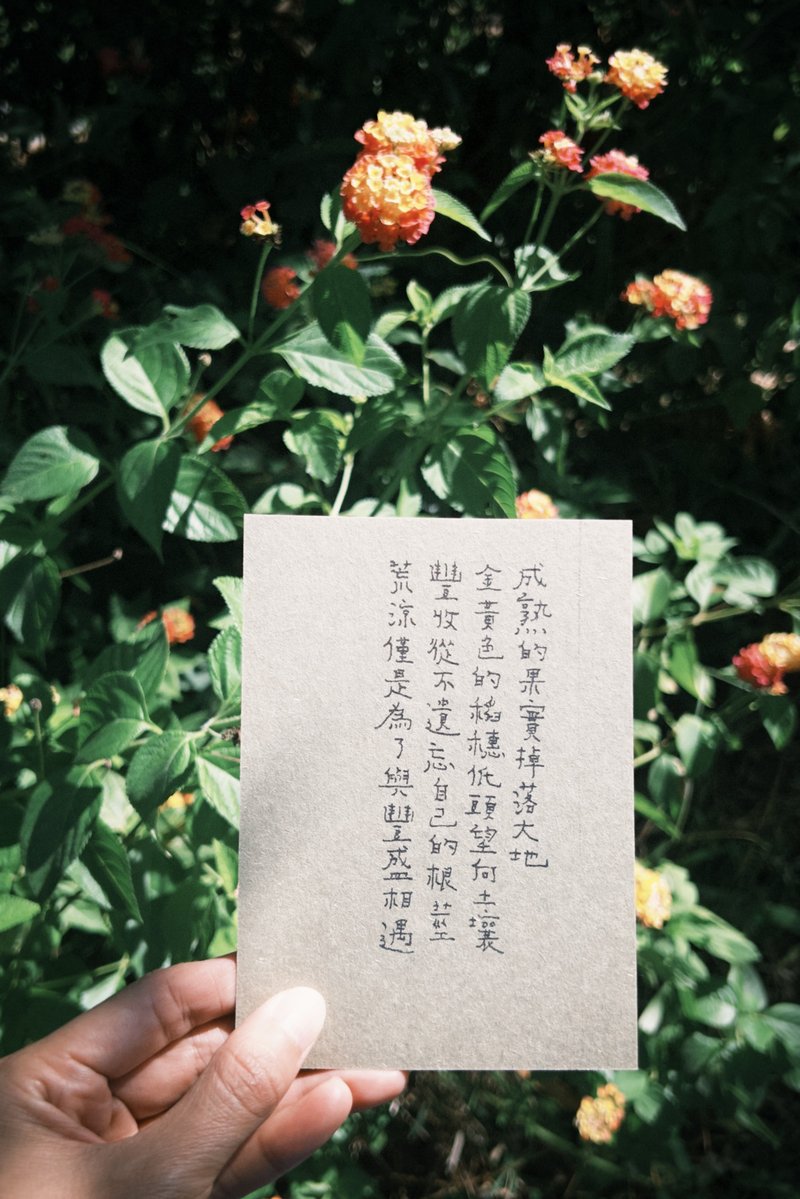 成熟的果實掉落大地
金黃色的稻穗低頭望向土壤
豐收從不遺忘自己的根莖
荒涼僅是為了與豐盛相遇